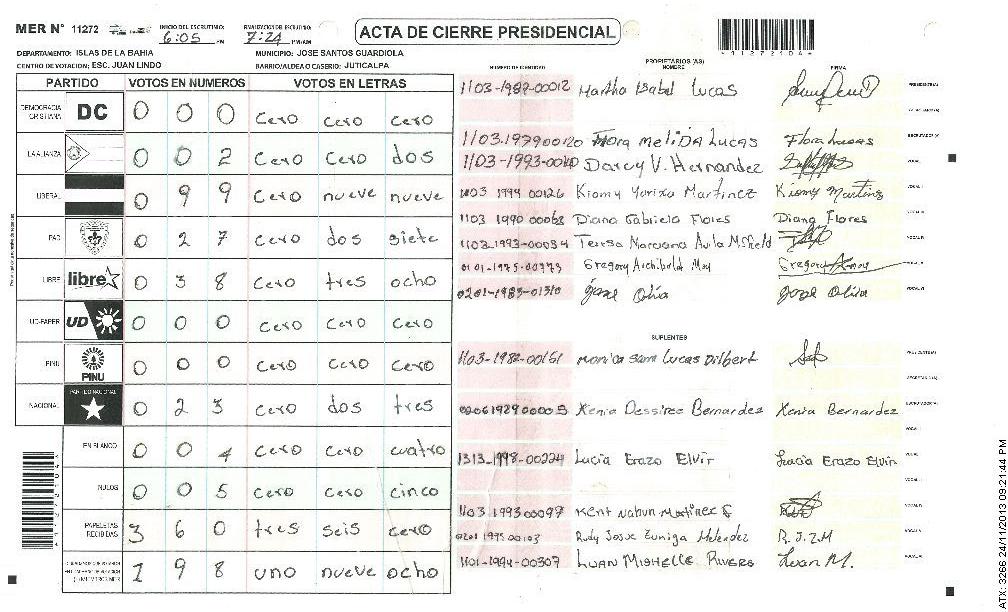 MER N° 11272 INICIO DEL ESCRUTINIO: 6:05 PM FINALIZACION DEL ESCRUTINIO: 7:24 PM/AM
ACTA DE CIERRE PRESIDENCIAL
*112721DA*
DEPARTAMENTO: ISLAS DE LA BAHIA MUNICIPIO: JOSE SANTOS GUARDIOLA
CENTRO DE VOTACION: ESC. JUAN LINDO BARRIO/ALDEA O CASERIO: JUTICALPA
PARTIDO VOTOS EN NUMEROS VOTOS EN LETRAS
DEMOCRACIA CRISTIANA DC 0 0 0 cero cero cero
LA ALIANZA 0 0 2 cero cero dos
LIBERAL 0 9 9 cero nueve nueve
PAC 0 2 7 cero dos siete
LIBRE libre 0 3 8 cero tres ocho
UD-FAPER UD 0 0 0 cero cero cero
PINU PINU 0 0 0 cero cero cero
NACIONAL PARTIDO NACIONAL 0 2 3 cero dos tres
EN BLANCO 0 0 4 cero cero cuatro
NULOS 0 0 5 cero cero cinco
PAPELETAS RECIBIDAS 3 6 0 tres seis cero
1 9 8 uno nueve ocho
PROPIETARIOS (AS)
NUMERO DE IDENTIDAD NOMBRE FIRMA
1103-1987-00012 Martha Isabel Lucas PRESIDENTE(A)
1103.197900120 Flora MeliDA Lucas Flora Lucas ESCRUTADOR(A)
Darcy V. Hernandez VOCAL
1103 1994 00126 Kiomy Yorixa Martinez Kiomy Martinez VOCAL I
1103 1990 00068 Diana Gabriela Flores Diana Flores
1103-1993-00034 Teresa
0101-1975-00973 Gregory Archibald
0201-1983-01310 Jose Oliva Jose Oliva VOCAL VI
SUPLENTES
1103-1982-00161 Monica Sara Lucas Dilbert PRESIDENTE(A)
SECRETARIO(A)
Xenia Dessiree Bernardez Xenia Bernardez ESCRUTADOR(A)
1313-1998-00224 Lucia Erazo Elvir Lucia Erazo Elvir
1103-1993 00097 Kent Nahun Martinez
0201 1995 00103 Rudy Josue Zuniga Melendez R.J.Z.M
1101-1994-00307 LUAN MISHELLE RIVERS Luan M.
ATX: 3266 24/11/2013 09:21:44 PM